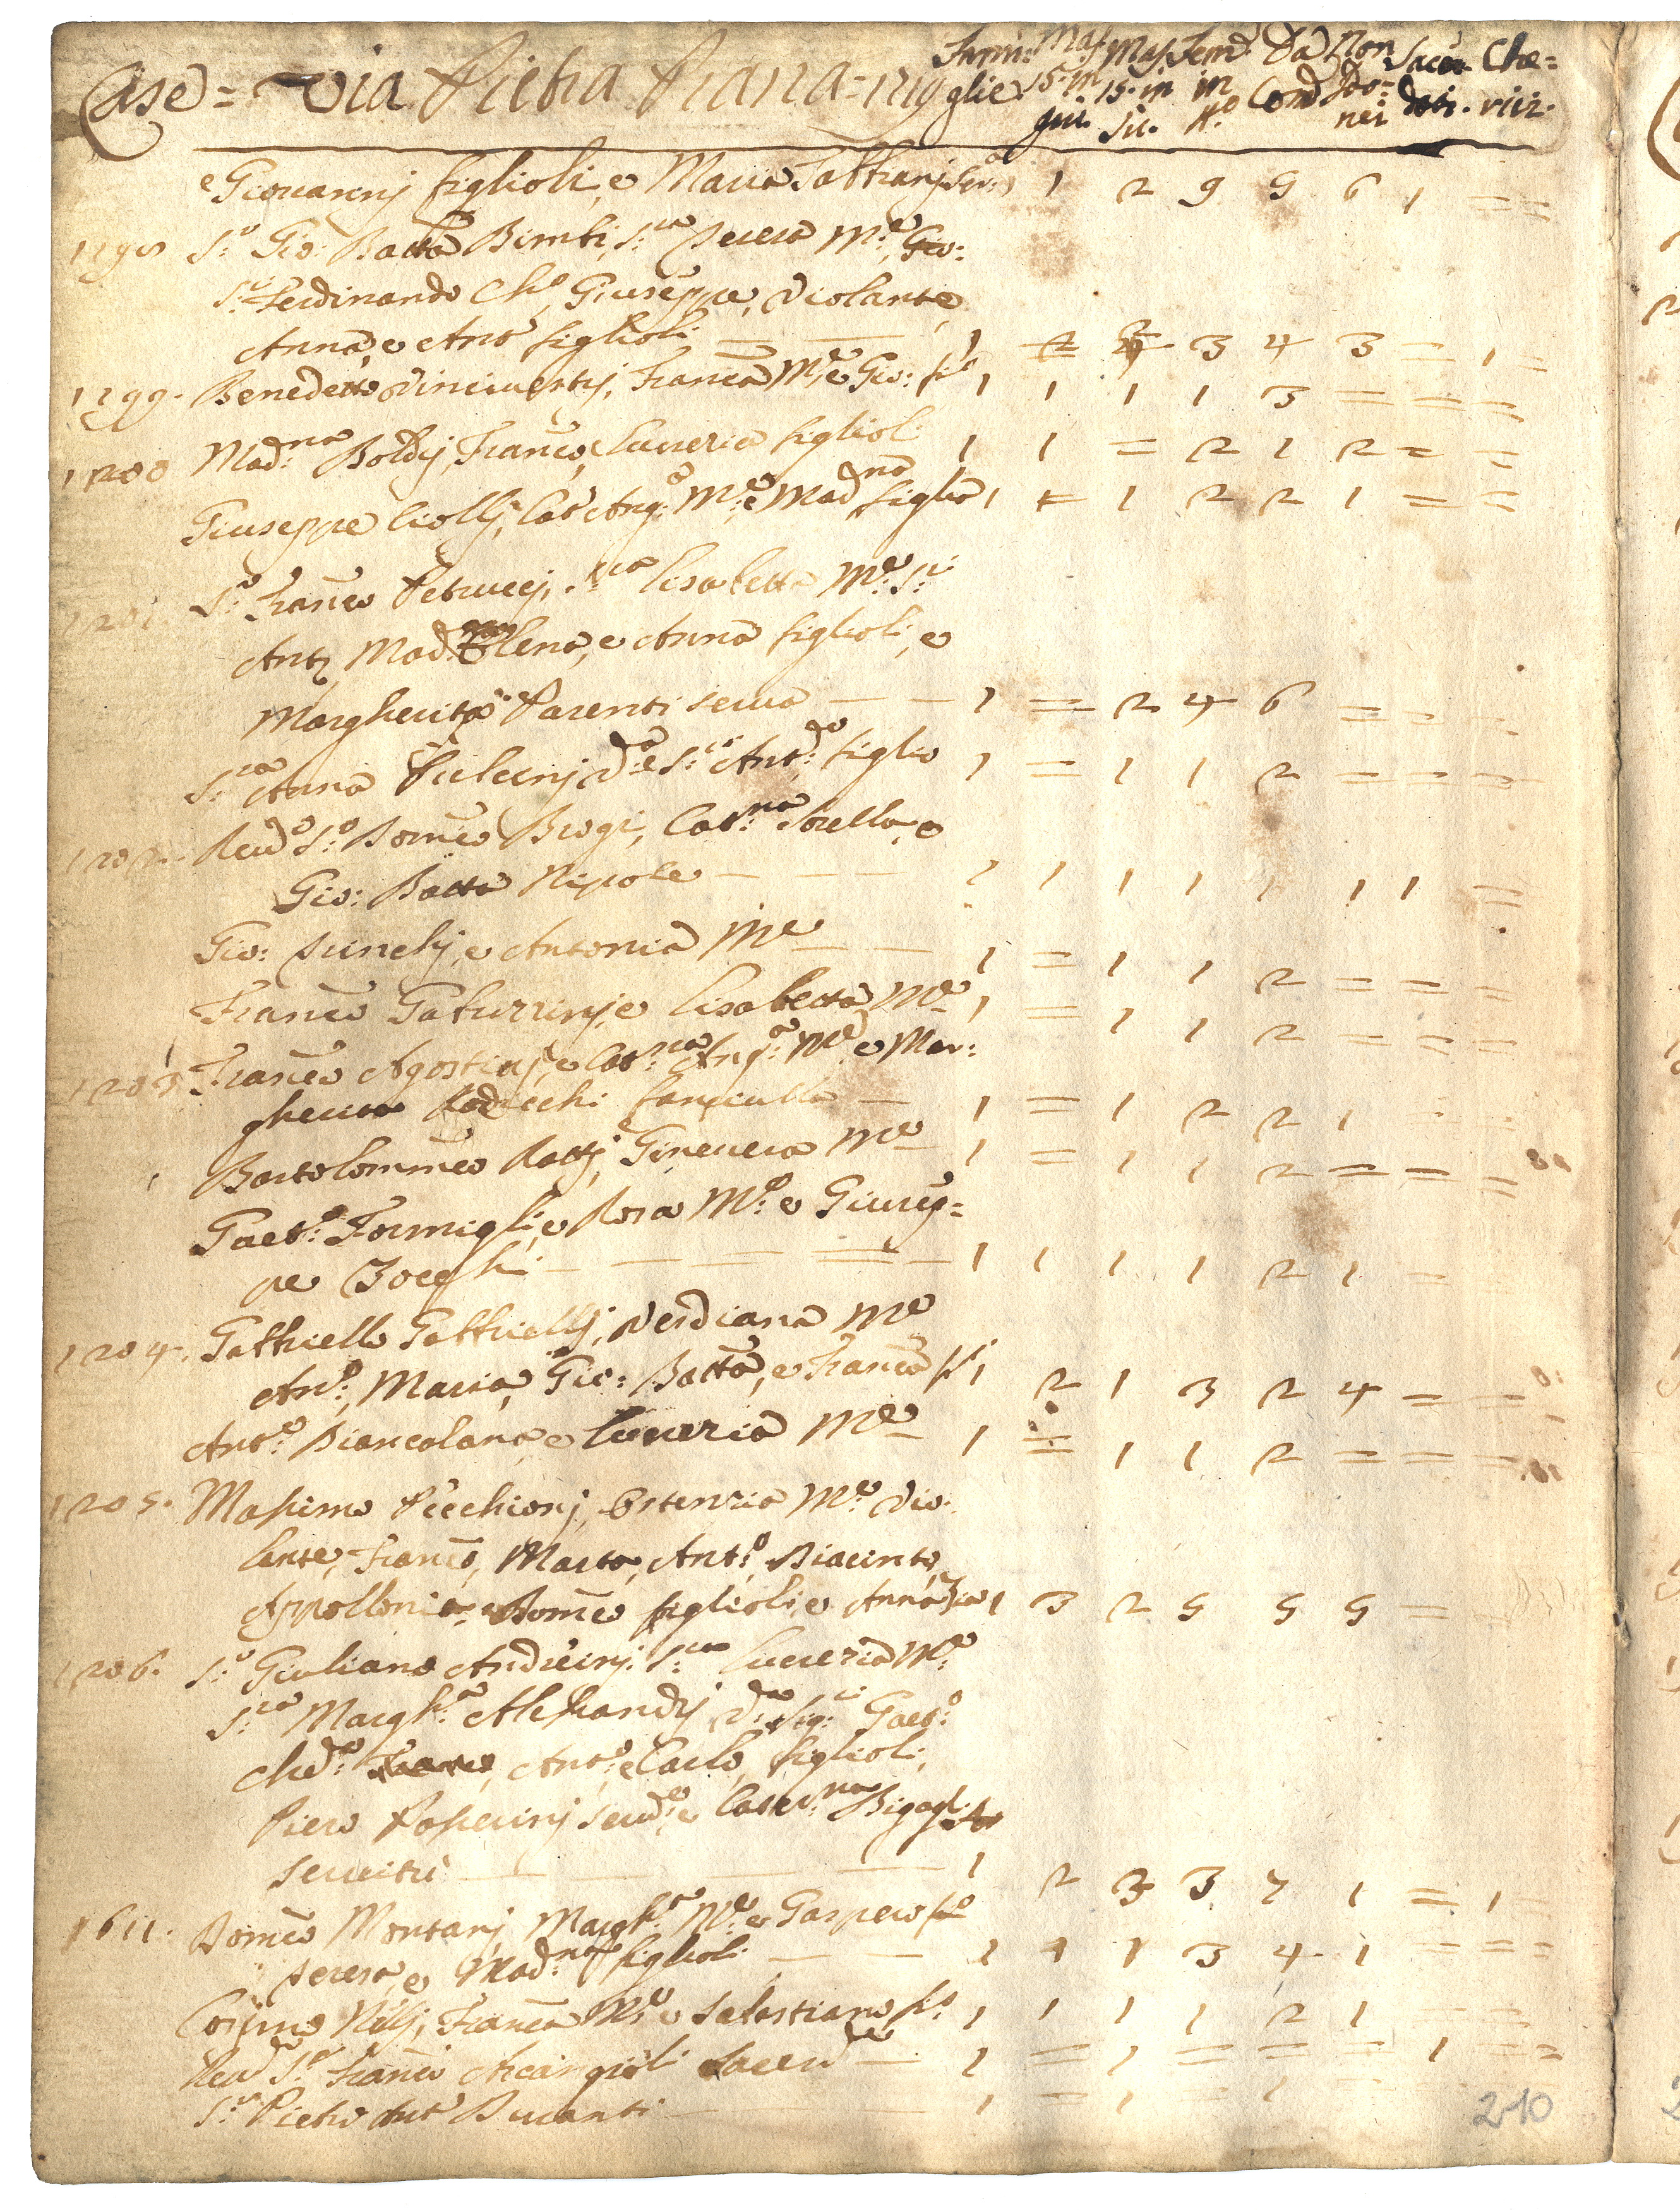 Case = Via Pietra Piana = 1719 Fami:glie Mas. 15. in giù. Mas. 15. in sù. Fem. in N.o Da Com Non Com:nei Sacer:doti. Che:rici.
e Giovannj figlioli, e Maria Serv: 1 2 9 9 6 1 = =
1198 S.r Gio: Batta Bimbi, S.ra Teresa M.e, Gio:
S.r Ferdinando Ch.o, Giuseppe, Violante
Anna, e Ant.o figlioli — — 1 3 4 3 = 1 =
1199. Benedetto Vincivestrj, Franca M.e e Gio: f.o 1 1 1 1 3 = = =
1200 Mad.na Boldrj, Franco, Lucrezia figlioli 1 1 = 2 1 2 = =
Giuseppe Ciollj, Cat.a Ang.a M.e e Mad.na figlia 1 = 1 2 2 1 = =
1201. S.r Franco Petruccj, S.ra Lisabetta M.e S.ri
Ant.o Mad.lena, e Anna figlioli, e
Margherita Parenti serva — — 1 = 2 4 6 = = =
S.ra Anna V.a e S.r Ant.o figlio 1 = 1 1 2 = = =
1202. Reud.o S.r Domco Brogi, Cat.na Sorella, e
Gio: Batta Nipote — — — 1 1 1 1 1 1 1 =
Gio: e Antonia M.e — — 1 = 1 1 2 = = =
Franco Gaburrinj, e Lisabetta M.e 1 = 1 1 2 = = =
1203. Franco Agostinj, e Cat.na Ang.a M.e e Mar:
gherita fanciulla — 1 = 1 2 2 1
Bartolommeo Rattj, Ginevera M.e 1 = 1 1 2 = = =
Gaet.o Formigli, e Rosa M.e e Giusep=
pe — — — — 1 1 1 1 2 1 =
1204. Gabbriello Gabbriellj, Verdiana M.e
Ant.o, Maria, Gio: Batta, e Franca f.i 1 2 1 3 2 4 = =
Ant.o Biancalana, e Lucrezia M.e 1 = 1 1 2 = = =
1205. Massimo Picchionj, Ortenzia M.e Vio:
lante, Franco, Marta, Ant.o, Diacinto,
Appollonia, e Domco figlioli, e Anna 1 3 2 5 5 5 =
1206. S.r Giuliano Andreinj. S.ra Lucrezia M.e
S.ra Margh.a Alessandrj V.a Sig.ri Gaet.o
Ant.o, e Carlo, figlioli,
Piero serv.e e Cater.na
servitù — — — 1 2 3 3 7 1 = 1
1611. Domco Montanj, Margh.a M.e e Gaspero f.o
Teresa, e Mad.na figlioli — — 1 1 1 3 4 1 = = =
Cosimo Nellj, Franca M.e e Sabastiano f.o 1 1 1 1 2 1 = =
Reud.o S.r Franco Sacerd.te — 1 = 1 = = = 1 = =
S.r Pietro Ant.o — 1 = 1 = 1
210